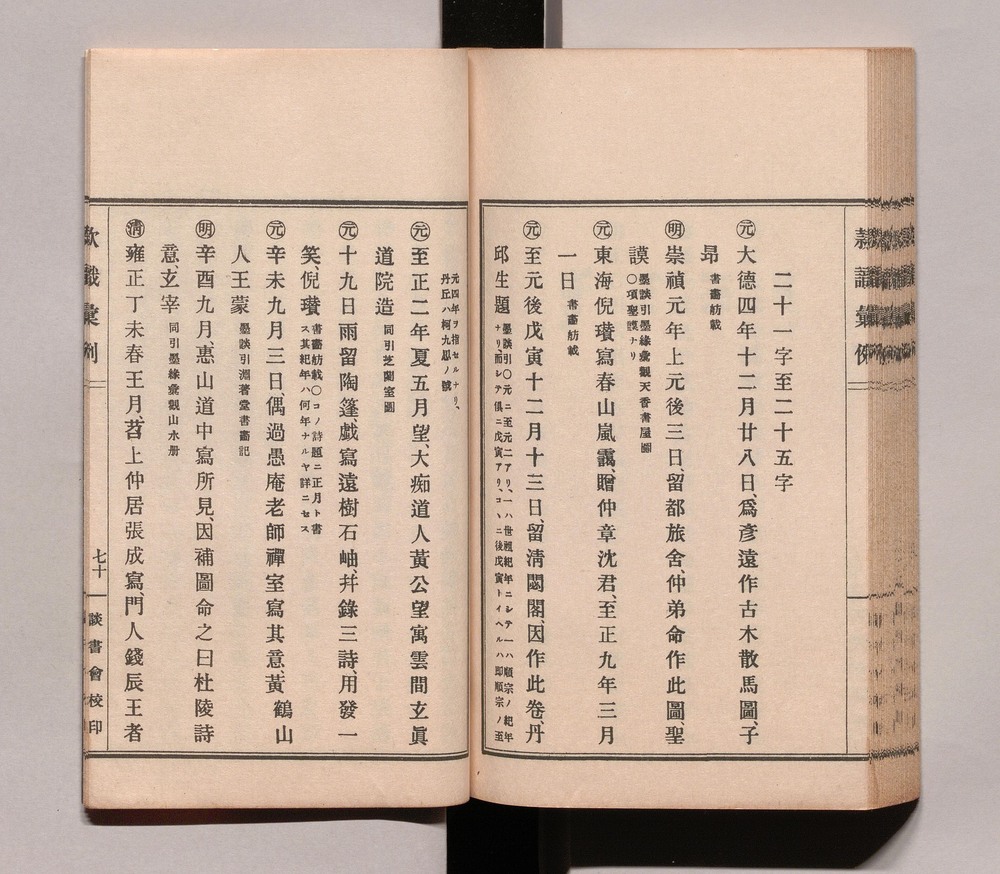 二十一字至二十五字
元 大德四年十二月廿八日、爲彥遠作古木散馬圖、子
昂 書畫舫載
明 崇禎元年上元後三日、留都旅舍、仲弟命作此圖、聖
謨 墨談引墨緣彙觀天香書屋圖
〇項聖謨ナリ
元 東海倪瓚寫春山嵐靄、贈仲章沈君、至正九年三月
一日 書畫舫載
元 至元後戊寅十二月十三日、留淸閟閣、因作此卷、丹
邱生題 墨談引〇元ニ至元二アリ、一ハ世祖紀年ニシテ一ハ順宗ノ紀年
ナリ而シテ俱ニ戊寅アリ、コヽニ後戊寅トイヘルハ卽順宗ノ至
元四年ヲ指セルナリ、
丹丘ハ柯九思ノ號
元 至正二年夏五月望、大痴道人黃公望寓雲間玄眞
道院造 同引芝蘭室圖
元 十九日雨留陶篷、戲寫遠樹石岫、幷錄三詩、用發一
笑、倪瓚 書畫舫載〇コノ詩題ニ正月ト書
ス其紀年ハ何年ナルヤ詳ニセス
元 辛未九月三日、偶過愚庵老師禪室寫其意、黃鶴山
人王蒙 墨談引淵著堂書畫記
明 辛酉九月、惠山道中寫所見、因補圖命之曰杜陵詩
意、玄宰 同引墨緣彙觀山水册
淸 雍正丁未春王月、苕上仲居張成寫、門人錢辰王者
七十
談書會校印